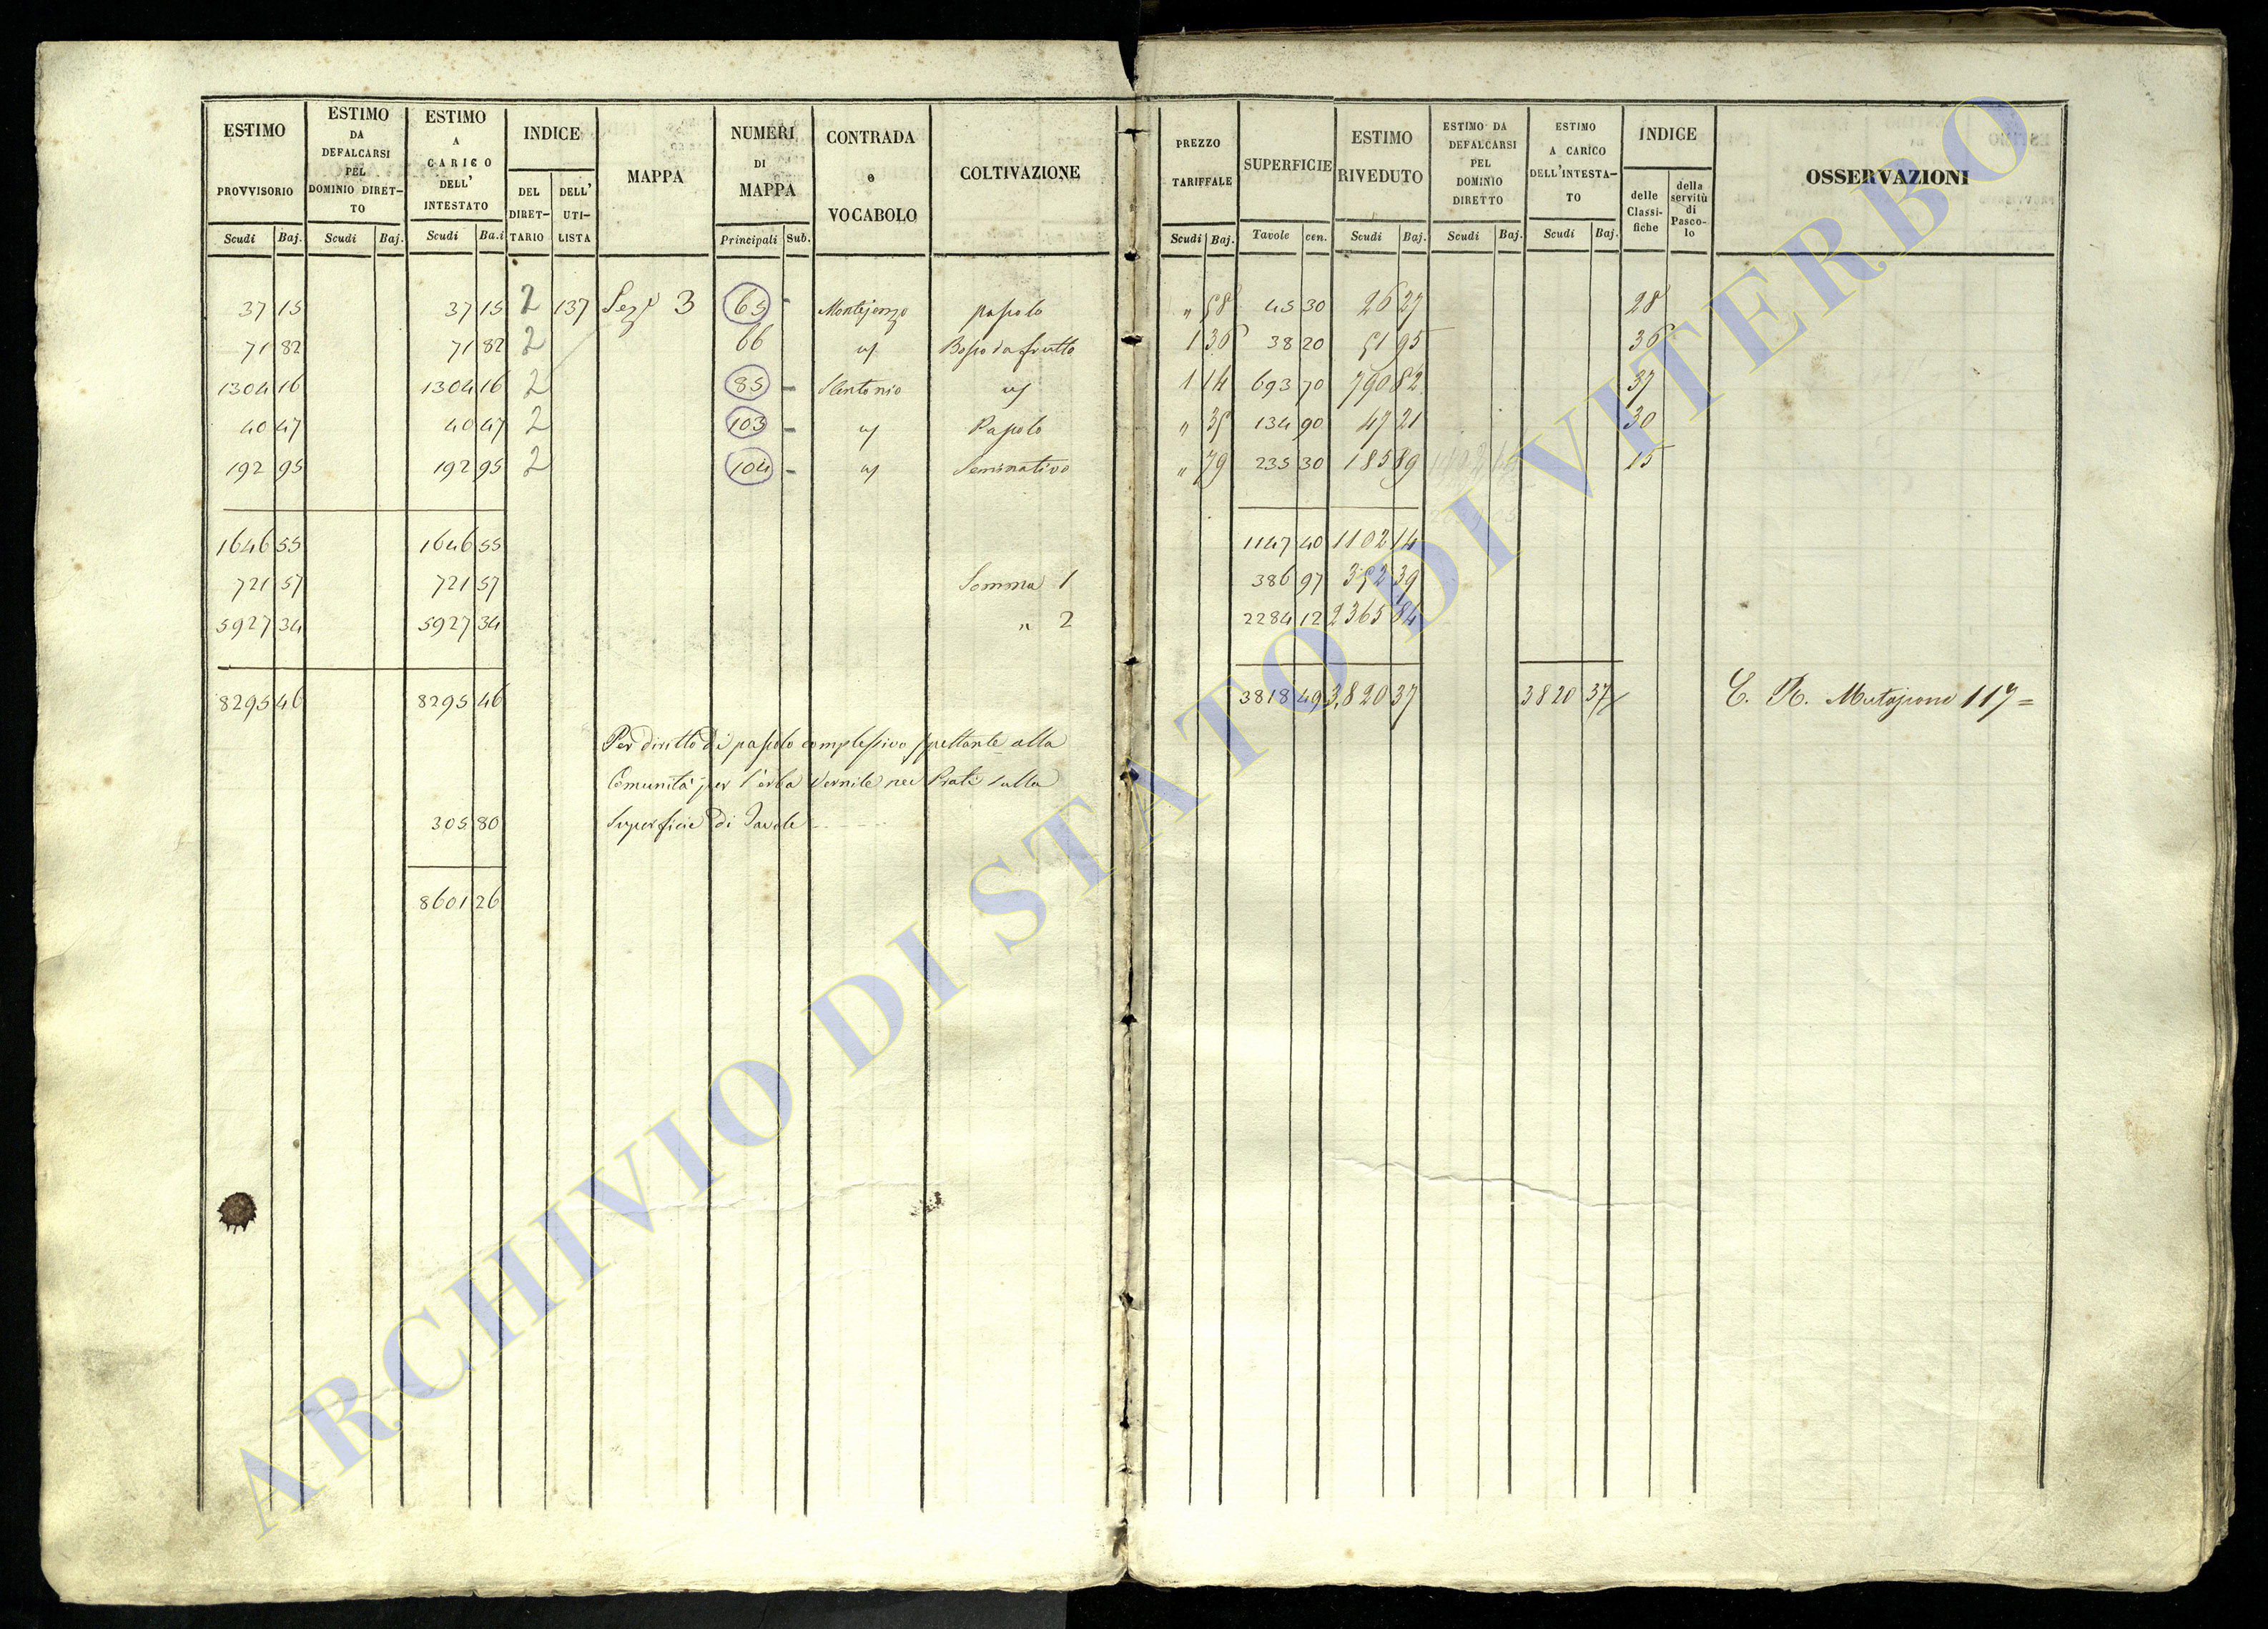 ESTIMO PROVVISORIO Scudi Baj.
ESTIMO DA DEFALCARSI PEL DOMINIO DIRET-TO Scudi Baj.
ESTIMO A CARICO DELL' INTESTATO Scudi Ba.i
INDICE DEL DIRET-TARIO DELL' UTI-LISTA
MAPPA
NUMERI DI MAPPA Principali Sub.
CONTRADA e VOCABOLO
COLTIVAZIONE
PREZZO TARIFFALE Scudi Baj.
SUPERFICIE Tavole cen.
ESTIMO RIVEDUTO Scudi Baj.
ESTIMO DA DEFALCARSI PEL DOMINIO DIRETTO Scudi Baj.
ESTIMO A CARICO DELL'INTESTA-TO Scudi Baj.
INDICE delle Classi-fiche della servitù di Pasco-lo
OSSERVAZIONI
37 15 37 15 2 137 Sez. 3 65 - pascolo " 58 45 30 26 27 28
71 82 71 82 2 66 " Bosco da frutto 1 36 38 20 51 95 36
1304 16 1304 16 2 85 - S Antonio " 1 14 693 70 790 82 37
40 47 40 47 2 103 - " Pascolo " 35 134 90 47 21 30
192 95 192 95 2 104 - " Seminativo " 79 235 30 185 89 15
1646 55 1646 55 1147 40 1102 14
721 57 721 57 Somma 1 386 97 352 39
5927 34 5927 34 " 2 2284 12 2365 84
8295 46 8295 46 3818 49 3,820 37 3820 37 C. R. Mutazione 117 =
Per diritto di pascolo complessivo spettante alla
Comunità per l'erba Vernile nei Prati sulla
305 80 Superficie di Tavole
8601 26
ARCHIVIO DI STATO DI VITERBO